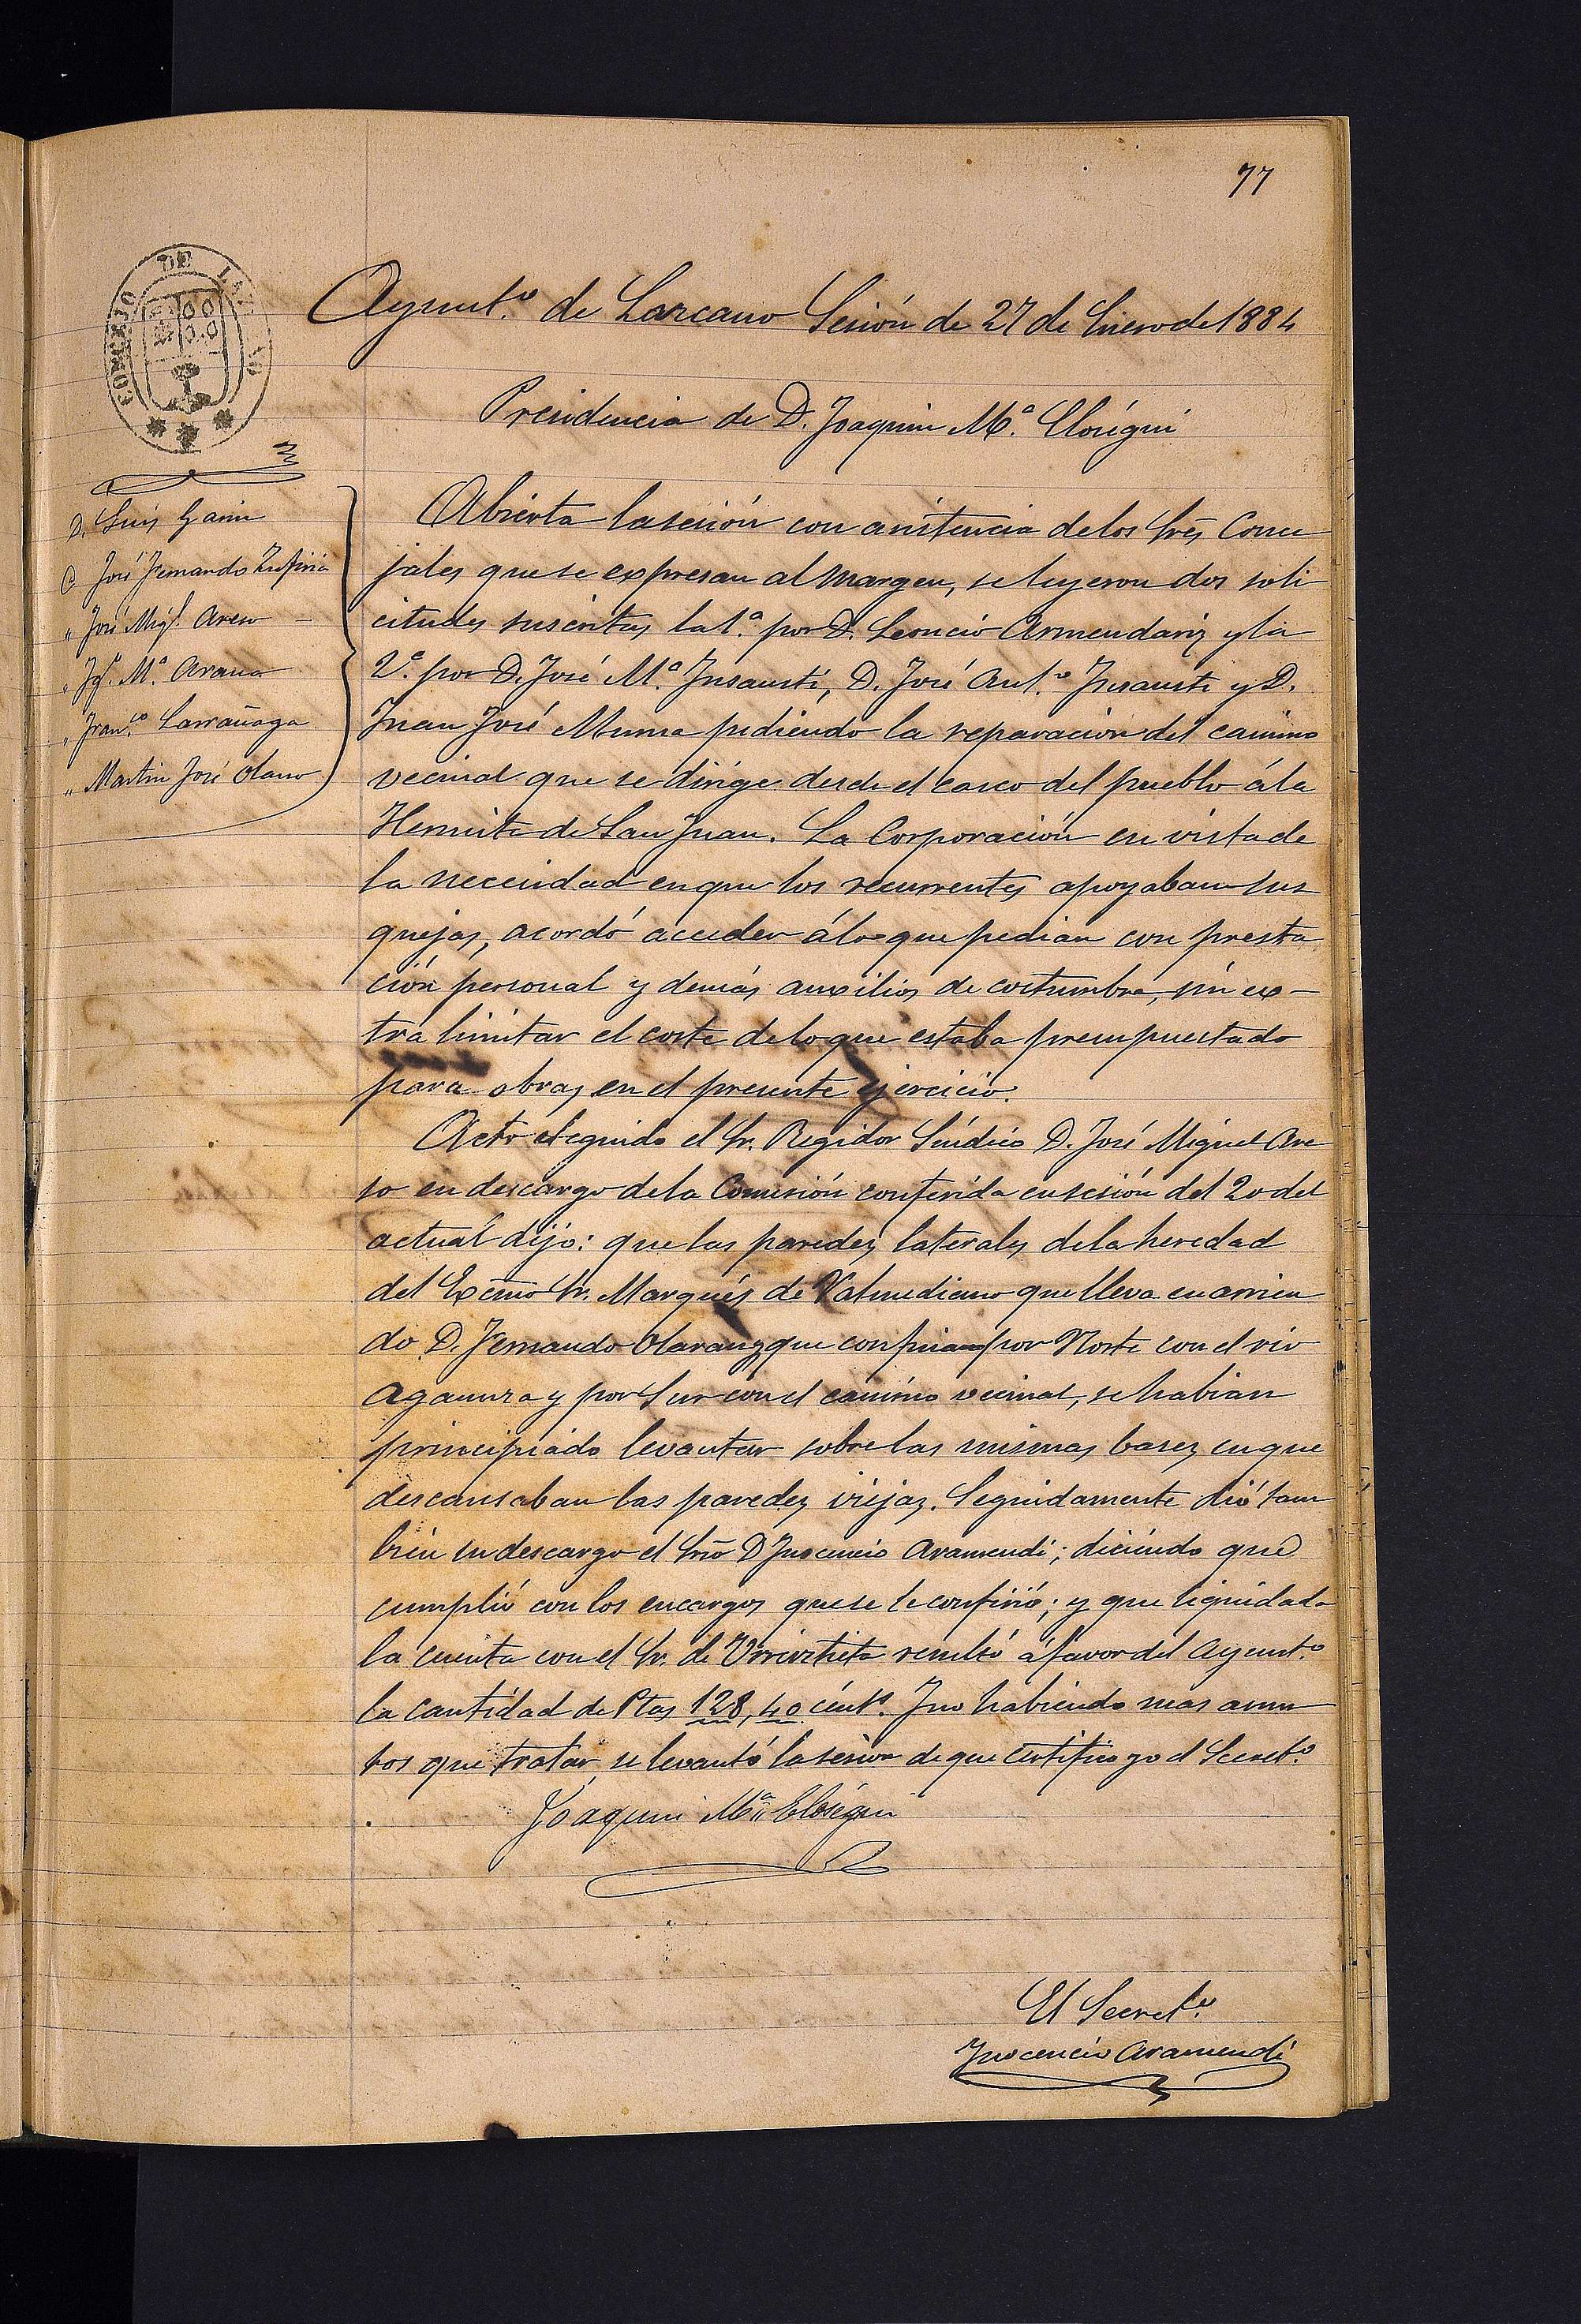 77
CONCEJO DE LAZCANO
Ayunt.º de Lazcano Sesión de 27 de Enero de 1884
Presidencia de D. Joaquin M.ª Eloségui
D. Luis Garin
José Fernando Zufiria
" José Mig.l Areso
" Ig.º M.ª Arana
" Fran.co Larrañaga
" Martin José Olano
Abierta la sesión con asistencia de los Sres Conce
jales que se expresan al margen, se leyeron dos soli
citudes suscritas la 1.ª por D. Leoncio Armendariz y la
2.ª por D. José M.ª Insausti, D. José Ant.º Insausti y D.
Juan José Munoa pidiendo la reparación del camino
vecinal que se dirige desde el casco del pueblo á la
Hermita de San Juan. La Corporación en vista de
la necesidad en que los recurrentes apoyaban sus
quejas, acordó acceder á lo que pedian con presta
ción personal y demás auxilios de costumbre, sin ex-
tra limitar el coste de lo que estaba presupuestado
para obras en el presente ejercicio.
Acto seguido el Sr. Regidor Síndico D. José Miguel Are
so en descargo de la Comisión conferida en sesión del 20 del
actual dijo: que las paredes laterales de la heredad
del Excmo Sr. Marqués de Valmediano que lleva en arrien
do D. Fernando Olaran, que confinan por Norte con el rio
Agaunza y por Sur con el camino vecinal, se habian
principiado levantar sobre las mismas bases en que
descansaban las paredes viejas. Seguidamente dió tam
bién su descargo el Srio D Inocencio Aramendi; diciendo que
cumplió con los encargos que se le confirió; y que liquidada
la cuenta con el Sr. de Urrizti resultó á favor del Ayunt.º
la cantidad de Ptas 128,40 cénts. Y no habiendo mas asun
tos que tratar, se levantó la sesion de que certifico yo el Secret.º
Joaquin M.ª Elosegui
El Secret.º
Inocencio Aramendi